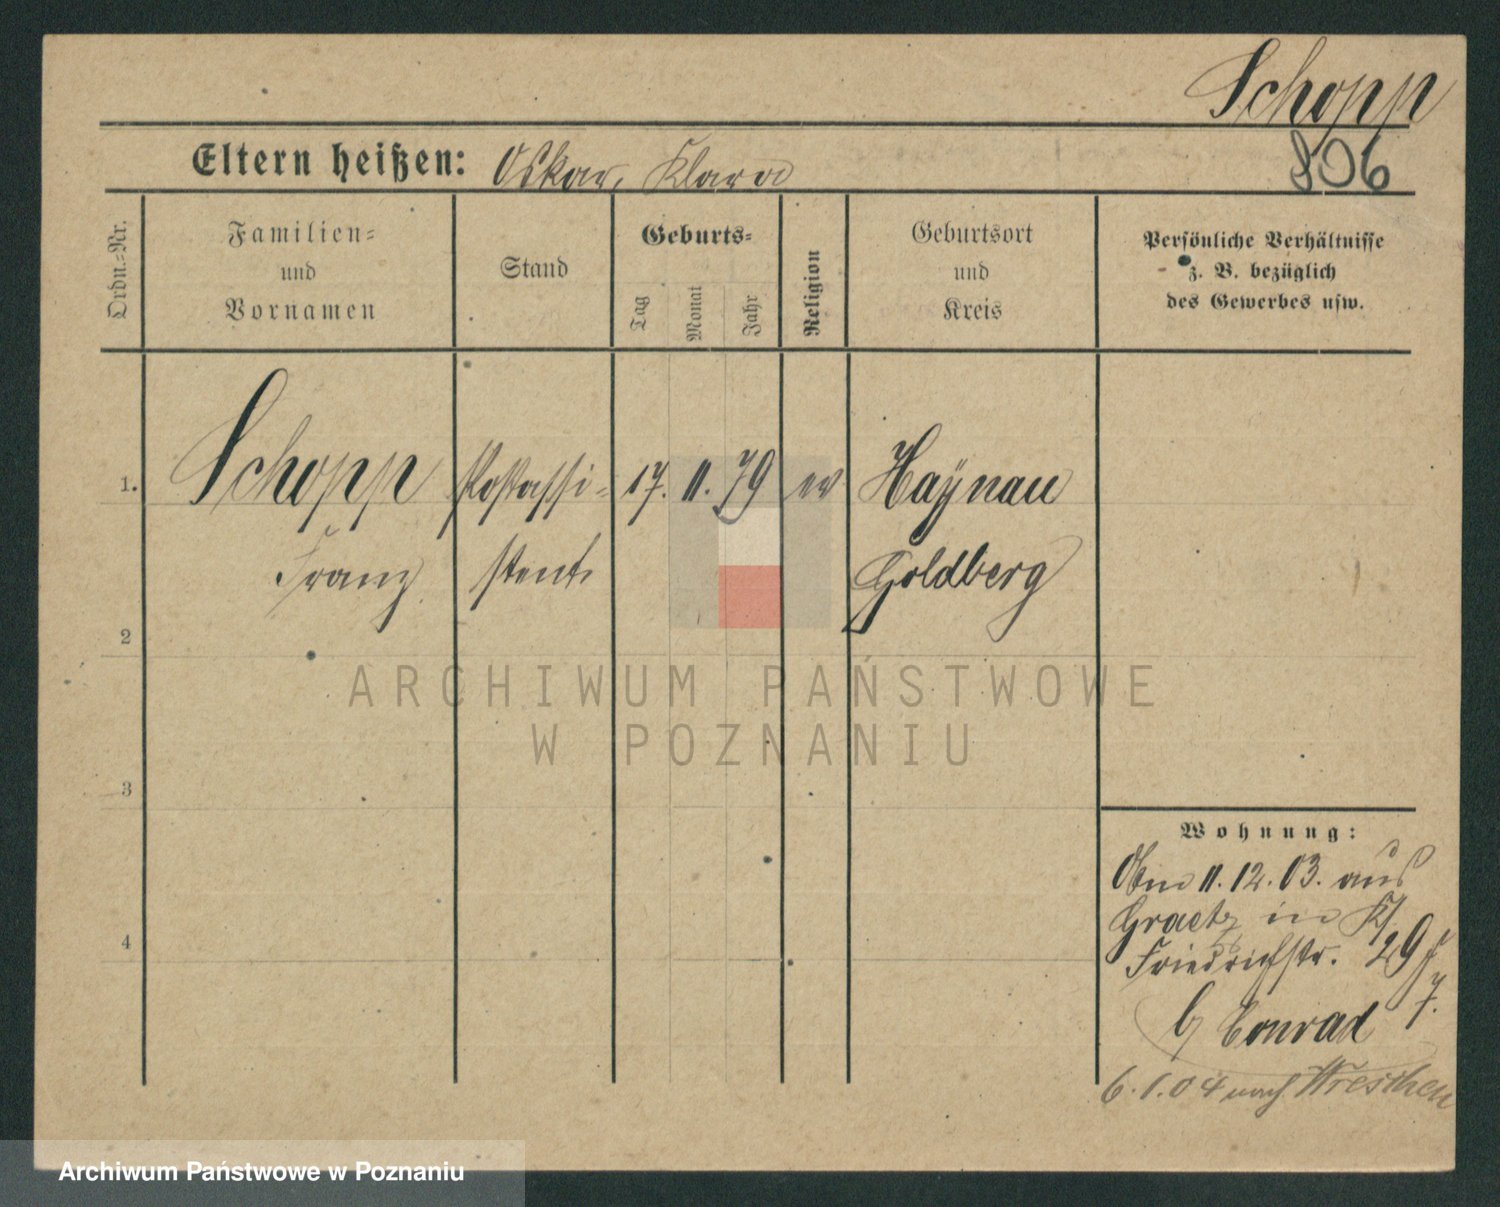 Schopp
806
Eltern heißen: Oskar, Klara
Ordn.-Nr.
Familien-
und
Vornamen
Stand
Geburts-
Tag
Monat
Jahr
Religion
Geburtsort
und
Kreis
Persönliche Verhältnisse
z. B. bezüglich
des Gewerbes usw.
1. Schopp Postassi- 17. 11. 79 ev Haynau
Franz stent Goldberg
2
ARCHIWUM PAŃSTWOWE
W POZNANIU
3
Wohnung:
11. 12. 03. aus
Graetz in
Friedrichstr. 29
b/ Conrad
7.
6.1.04 nach Wreschen
4
Archiwum Państwowe w Poznaniu